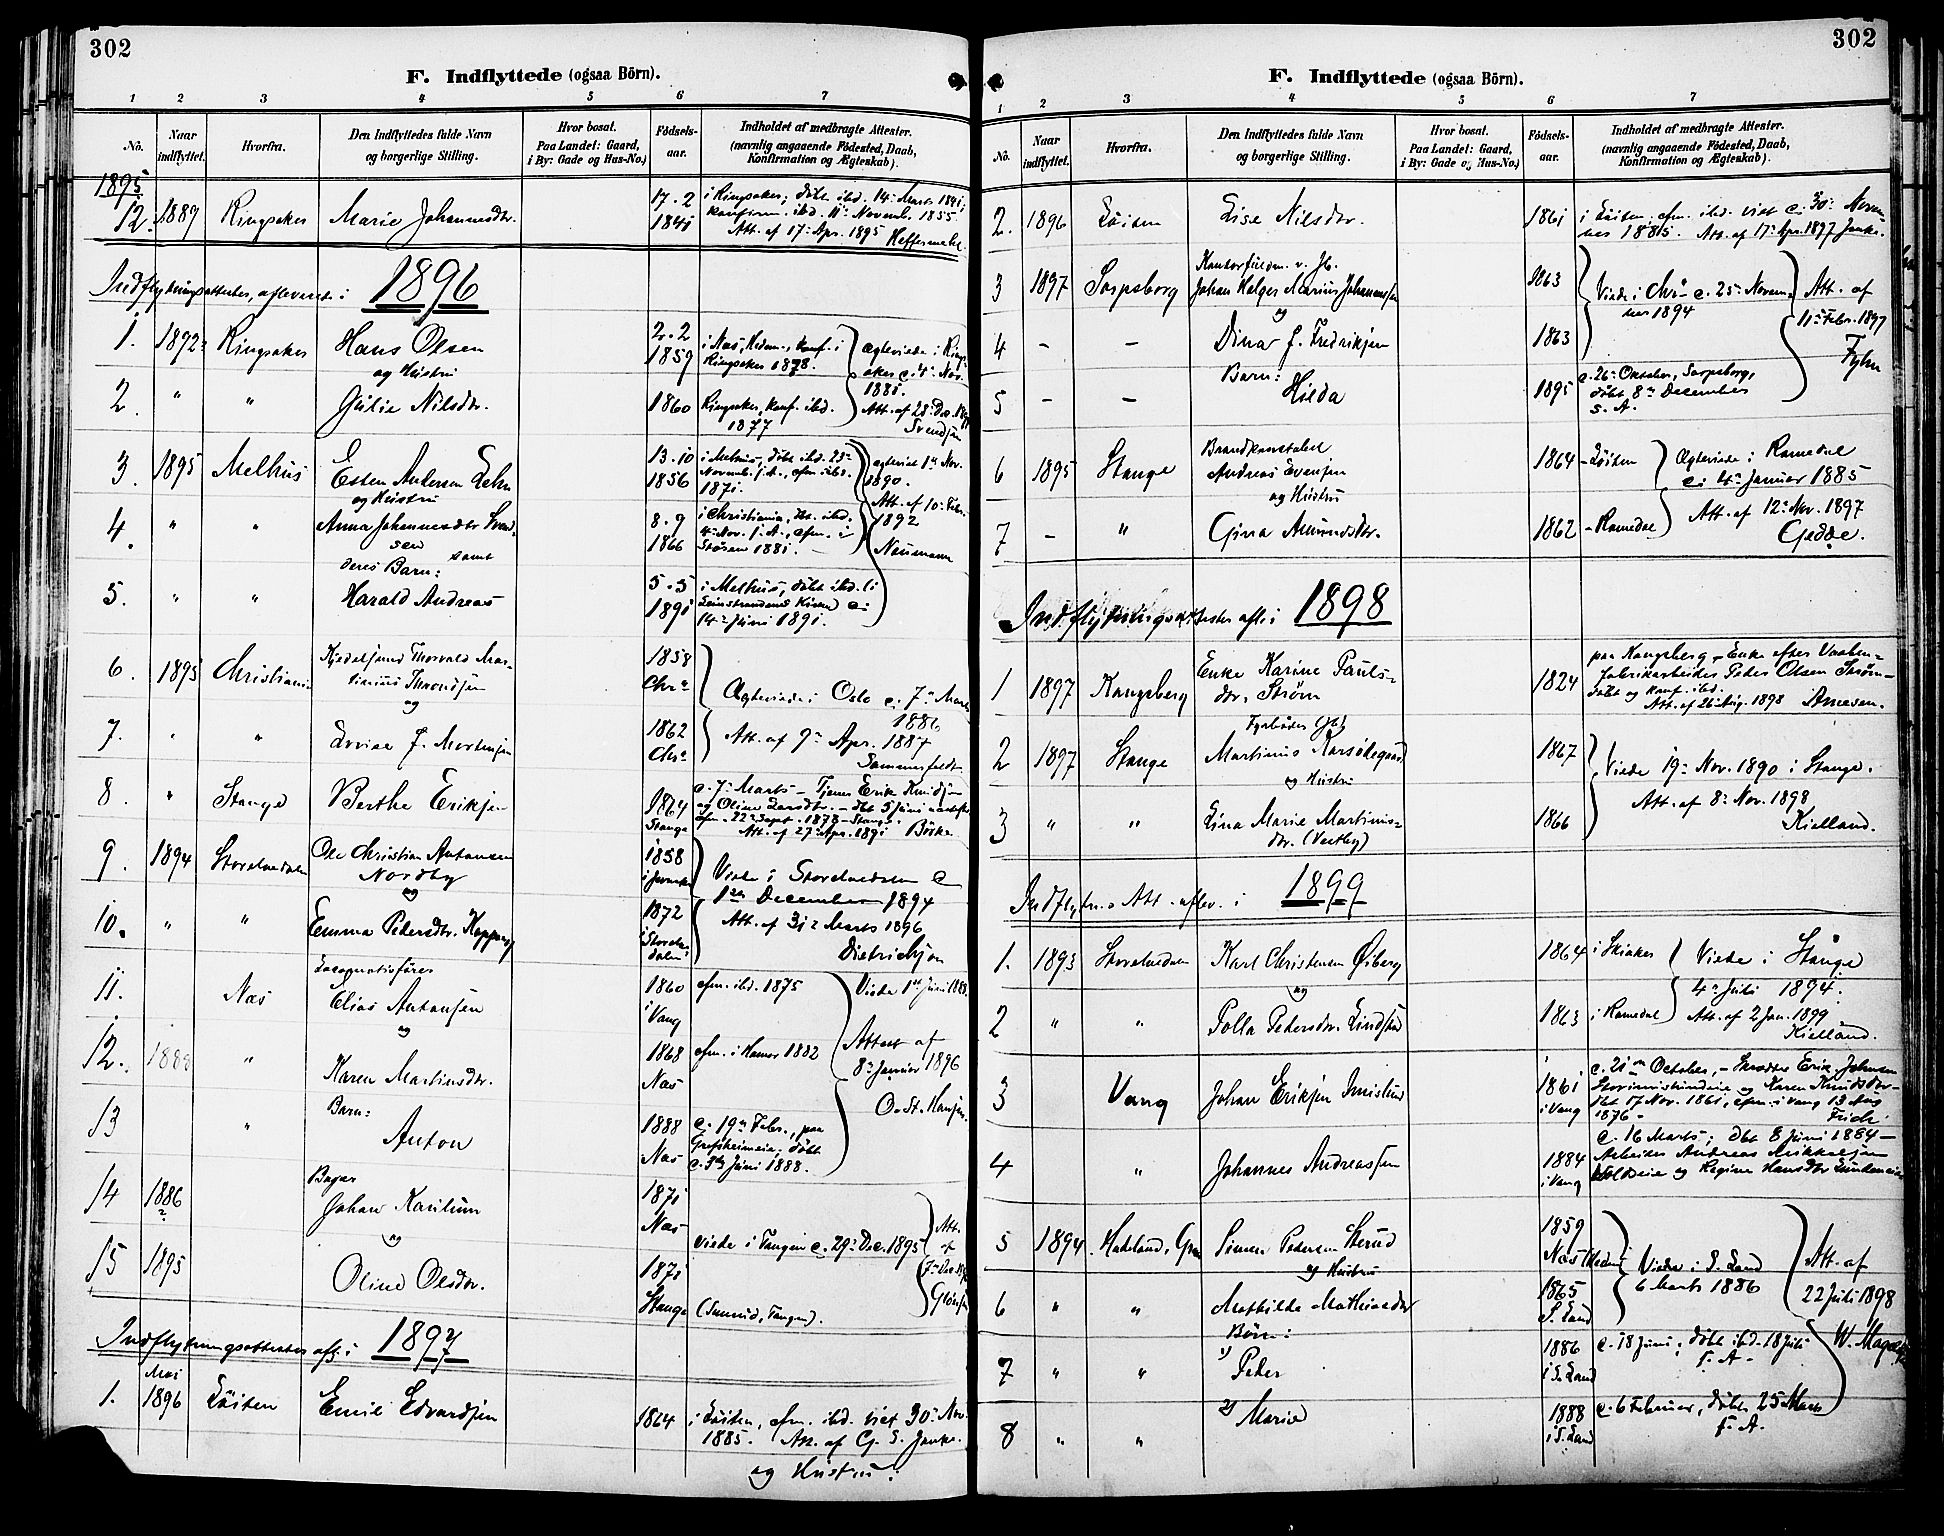 302
F. Indflyttede (ogsaa Börn).
1 2 3 4 5 6 7
No.
Naar indflyttet.
Hvorfra.
Den Indflyttedes fulde Navn og borgerlige Stilling.
Hvor bosat. Paa Landet: Gaard, i By: Gade og Hus-No.)
Fødselsaar.
Indholdet af medbragte Attester. (navnlig angaaende Fødested, Daab, Konfirmation og Ægteskab).
1895
12. 1889 Ringsaker Marie Johannesdtr. 17.2 1841 i Ringsaker; døbt ibd. 14. Marts 1841; konfirm. ibd. 11. Novemb. 1855
Att. af 17. Apr. 1895
Indflytningsattester, afleverede i 1896
1. 1892 Ringsaker Hans Olsen 2.2 1859 i Næs, Hedm., konf. i Ringsaker 1878.
og Hustru
Ægteviede i Ringsaker 4. Nov. 1881.
2. " " Julie Nilsdr. 1860 Ringsaker, konf. ibd. 1877
Att. af 28. Dec.
Svendsen
3. 1895 Melhus Esten Andersen 13.10 1856 i Melhus, døbt ibd. 23. Novemb. s. A., cfm. ibd. 1871.
og Hustru
Ægteviet 1. Nov. 1890.
Att. af 10. Febr. 1892
Neumann
4. " " Anna Johannesdtr Svendsen 8.9 1866 i Christiania, dbt. ibd. 4. Nov. s. A., cfm. i Støren 1881.
samt
deres Barn:
5. " " Harald Andreas 5.5 1891 i Melhus, døbt ibd. (i Leinstrandens Kirke) 14. Juni 1891.
6. 1895 Christiania Thorvald 1858 Chra.
og
Ægteviede i Oslo 7. Marts 1886
Att. af 9. Apr. 1887
Sommerfeldt
7. " " Lovise f. Mortensen 1862 Chra.
8. " Stange Berthe Eriksen 1864 Stange 7. Marts - Tjener Erik Knudsen og Oline Larsdtr. - dbt 5 Juni
cfm. 22. Sept. 1878 - Stange.
Att. af 27. Apr. 1891
9. 1894 Storelvedalen Ole Christian Antonsen Nordby 1858
og
Viede i Storelvedalen 1. December 1894
Att. af 31. Marts 1896
Dietrichson
10. " " Emma Pedersdtr. 1872 i Storelvdalen
11. Næs Elias Antonsen 1860 i Vang cfm. ibd. 1875
og
Viede 1. Juni
12. 1888 " Karen Martinsdtr. 1868 Næs cfm. i Hamar 1882
Attest af 8. Januar 1896
Barn:
13 " Anton 1888 Næs 19. Febr., paa døbt 3. Juni 1888.
14 1886 Bager Johan 1871 Næs
og
viede i Tangen 29. Dec. 1895
Att. af
15 1895 Oline Olsdtr. 1871 Stange
Indflytningsattester afl. i 1897
1. Mai 1896 Løiten Emil Edvardsen 1864 i Løiten, cfm. ibd. viet 30. Nov. 1885. Att. af
og Hustru:
302
F. Indflyttede (ogsaa Börn).
1 2 3 4 5 6 7
No.
Naar indflyttet.
Hvorfra.
Den Indflyttedes fulde Navn og borgerlige Stilling.
Hvor bosat. Paa Landet: Gaard, i By: Gade og Hus-No.)
Fødselsaar.
Indholdet af medbragte Attester. (navnlig angaaende Fødested, Daab, Konfirmation og Ægteskab).
2. 1896 Løiten Lise Nilsdtr. 1861 i Løiten, cfm. ibd. viet 30. November 1885. Att. af 17. Apr. 1897
3 1897 Sarpsborg Johan Helger Marius Johannessen 1863
og
Viede i Chra 25. November 1894
Att. af 11. Febr. 1897
4 - - Dina f. Fredriksen 1863
Barn:
5 - - Hilda 1895 26. Oktober, Sarpsborg, døbt 8. December s. A.
6 1895 Stange Brandkonstabel Andreas Evensen 1864 - Løiten
og Hustru
Ægteviede i Romedal 4. Januar 1885
Att. af 12. Nov. 1897
7 - " Gina Amundsdtr. 1862 - Romedal
Indflytningsattester afl. i 1898
1 1897 Kongsberg Enke Karine Paulsdtr. Strøm 1824 paa Kongsberg - Enke efter Vaabenfabrikarbeider Peder Olsen Strøm - døbt og konf. ibd.
Att. af 26. Aug. 1898
2 1897 Stange Martinus 1867
og Hustru
Viede 19. Nov. 1890 i Stange.
Att. af 8. Nov. 1898
Kielland.
3 " " Lina Marie Martinusdtr. (Vestby) 1866
Indflytn. Att. aflev. i 1899
1. 1893 Storelvedalen Karl Christensen Øiberg 1864 i Skiaker
og
Viede i Stange 4. Juli 1894.
Att. af 2 Jan. 1899
Kielland.
2 " " Polla Pedersdtr. Lindstad 1863 i Romedal
3 Vang Johan Eriksen 1861 i Vang 21. October, - Erik Johansen og Karen Knudsdtr - dbt 17 Nov. 1861, cfm. i Vang 13 Aug 1876 -
4 " Johannes Andreassen 1884 i Vang 16 Marts; dbt 8 Juni 1884 - Arbeider Andreas Mikkelsen og Regine Hansdtr
5 1894 Hadeland, Gran Simen Pedersen 1859 Næs Hedm
og Hustru
Viede i S. Land 6 Marts 1886
Att. af 22 Juli 1898
6 " " Mathilde Mathiasdtr 1865 S. Land
Børn:
7 " " 1) Peder 1886 i S. Land 18 Juni, døbt ibd. 18 Juli s. A.
8 " " 2) Marie 1888 i S. Land 6 Februar, døbt 25 Marts s. A.